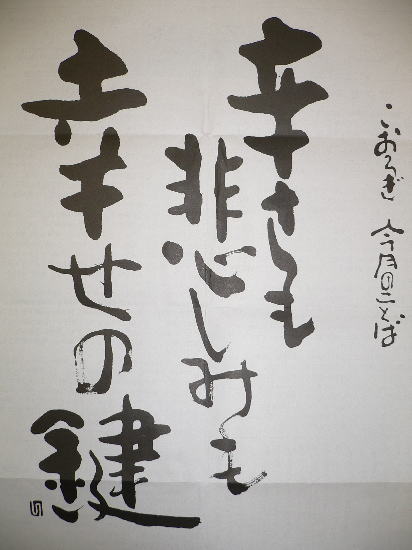 こおろぎ 今月のことば
辛さも
悲しみも
幸せの鍵